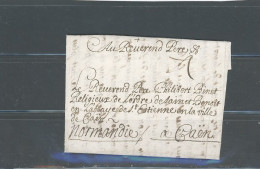 Au Reverend Pere
Le Reverend Pere Philibert Pinot
Religieux de l'ordre de saint Benoît
en l'abbaye de St Estienne en la ville
de Caen
Normandie / a Caen